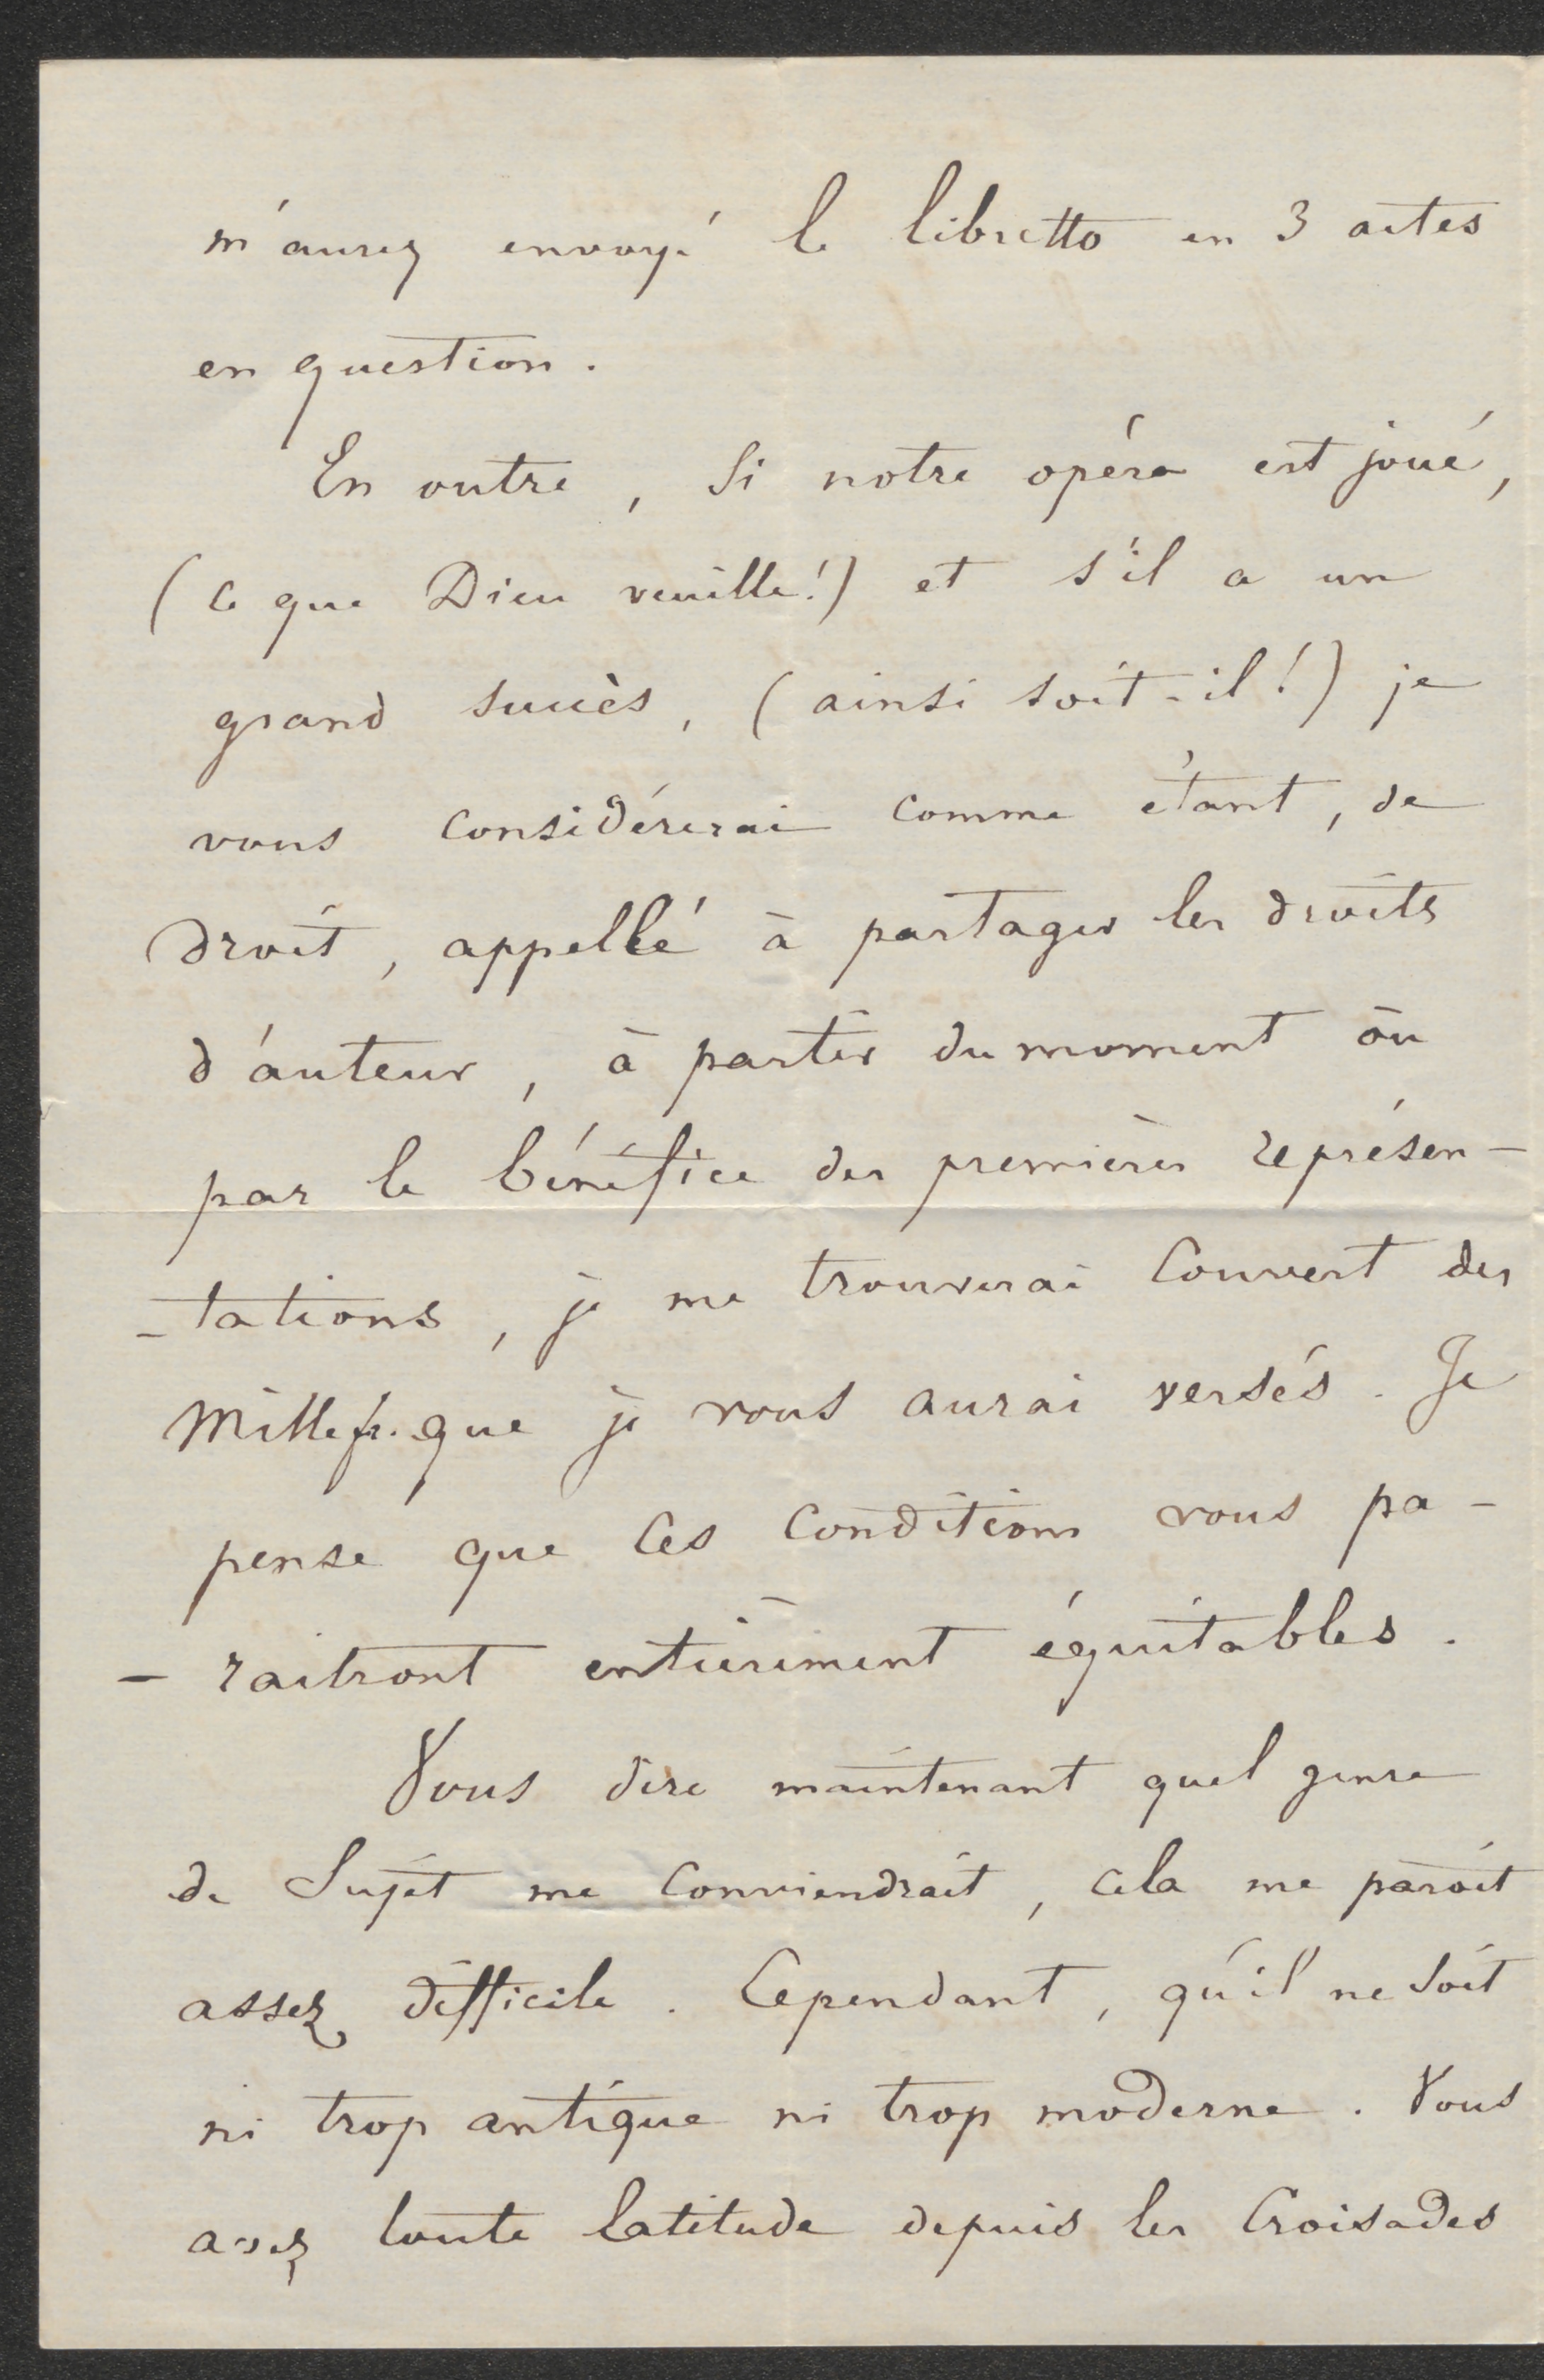 m'aurez envoyé le libretto en 3 actes
en question.
En outre, si notre opéra est joué,
(ce que Dieu veuille!) et s'il a un
grand succès, (ainsi soit-il!) je
vous considérerai comme étant, de
droit, appellé à partager les droits
d'auteur, à partir du moment où
par le bénéfice des premières représen-
-tations, je me trouverai couvert des
mille fr. que je vous aurai versés. Je
pense que ces conditions vous pa-
-raitront entièrement équitables.
Vous dire maintenant quel genre
de sujet me conviendrait, cela me paroit
assez difficile. Cependant, qu'il ne soit
ni trop antique ni trop moderne. Vous
avez toute latitude depuis les Croisades